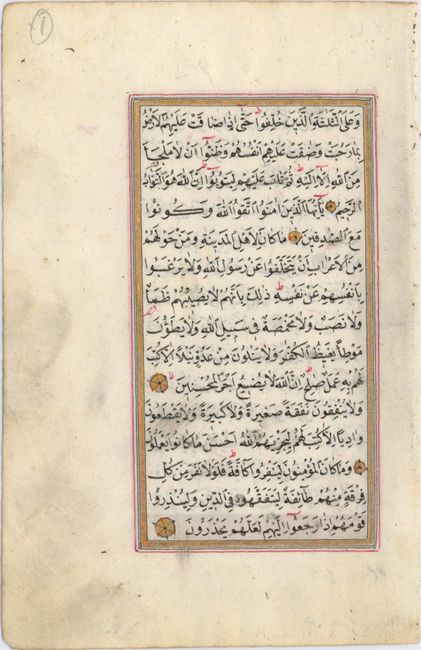 وَعَلَى الثَّلٰثَةِ الَّذِينَ خُلِّفُوا حَتّٰى إِذَا ضَاقَتْ عَلَيْهِمُ الْاَرْضُ
بِمَا رَحُبَتْ وَضَاقَتْ عَلَيْهِمْ اَنْفُسُهُمْ وَظَنُّوا اَنْ لَا مَلْجَأَ
مِنَ اللّٰهِ اِلَّا اِلَيْهِ ثُمَّ تَابَ عَلَيْهِمْ لِيَتُوبُوا اِنَّ اللّٰهَ هُوَ التَّوَّابُ
الرَّحِيمُ يَا اَيُّهَا الَّذِينَ اٰمَنُوا اتَّقُوا اللّٰهَ وَكُونُوا
مَعَ الصّٰدِقِينَ مَا كَانَ لِاَهْلِ الْمَدِينَةِ وَمَنْ حَوْلَهُمْ
مِنَ الْاَعْرَابِ اَنْ يَتَخَلَّفُوا عَنْ رَسُولِ اللّٰهِ وَلَا يَرْغَبُوا
بِاَنْفُسِهِمْ عَنْ نَفْسِهِ ذٰلِكَ بِاَنَّهُمْ لَا يُصِيبُهُمْ ظَمَأٌ
وَلَا نَصَبٌ وَلَا مَخْمَصَةٌ فِي سَبِيلِ اللّٰهِ وَلَا يَطَؤُنَ
مَوْطِئًا يَغِيظُ الْكُفَّارَ وَلَا يَنَالُونَ مِنْ عَدُوٍّ نَيْلًا اِلَّا كُتِبَ
لَهُمْ بِهِ عَمَلٌ صَالِحٌ اِنَّ اللّٰهَ لَا يُضِيعُ اَجْرَ الْمُحْسِنِينَ
وَلَا يُنْفِقُونَ نَفَقَةً صَغِيرَةً وَلَا كَبِيرَةً وَلَا يَقْطَعُونَ
وَادِيًا اِلَّا كُتِبَ لَهُمْ لِيَجْزِيَهُمُ اللّٰهُ اَحْسَنَ مَا كَانُوا يَعْمَلُونَ
وَمَا كَانَ الْمُؤْمِنُونَ لِيَنْفِرُوا كَافَّةً فَلَوْلَا نَفَرَ مِنْ كُلِّ
فِرْقَةٍ مِنْهُمْ طَائِفَةٌ لِيَتَفَقَّهُوا فِي الدِّينِ وَلِيُنْذِرُوا
قَوْمَهُمْ اِذَا رَجَعُوا اِلَيْهِمْ لَعَلَّهُمْ يَحْذَرُونَ